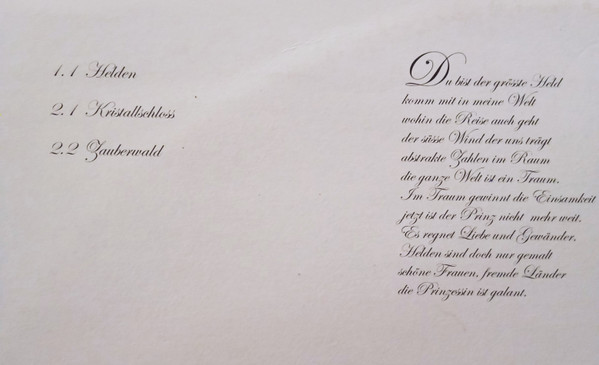 1.1 Helden
2.1 Kristallschloss
2.2 Zauberwald
Du bist der grösste Held
komm mit in meine Welt
wohin die Reise auch geht
der süsse Wind der uns trägt
abstrakte Zahlen im Raum
die ganze Welt ist ein Traum.
Im Traum gewinnt die Einsamkeit
jetzt ist der Prinz nicht mehr weit.
Es regnet Liebe und Gewänder,
Helden sind doch nur gemalt
schöne Frauen, fremde Länder
die Prinzessin ist galant.